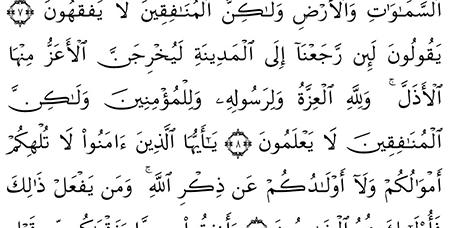 ٱلسَّمَٰوَٰتِ وَٱلْأَرْضِ وَلَٰكِنَّ ٱلْمُنَٰفِقِينَ لَا يَفْقَهُونَ ﴿٧﴾
يَقُولُونَ لَئِن رَّجَعْنَآ إِلَى ٱلْمَدِينَةِ لَيُخْرِجَنَّ ٱلْأَعَزُّ مِنْهَا
ٱلْأَذَلَّ ۚ وَلِلَّهِ ٱلْعِزَّةُ وَلِرَسُولِهِۦ وَلِلْمُؤْمِنِينَ وَلَٰكِنَّ
ٱلْمُنَٰفِقِينَ لَا يَعْلَمُونَ ﴿٨﴾ يَٰٓأَيُّهَا ٱلَّذِينَ ءَامَنُوا۟ لَا تُلْهِكُمْ
أَمْوَٰلُكُمْ وَلَآ أَوْلَٰدُكُمْ عَن ذِكْرِ ٱللَّهِ ۚ وَمَن يَفْعَلْ ذَٰلِكَ